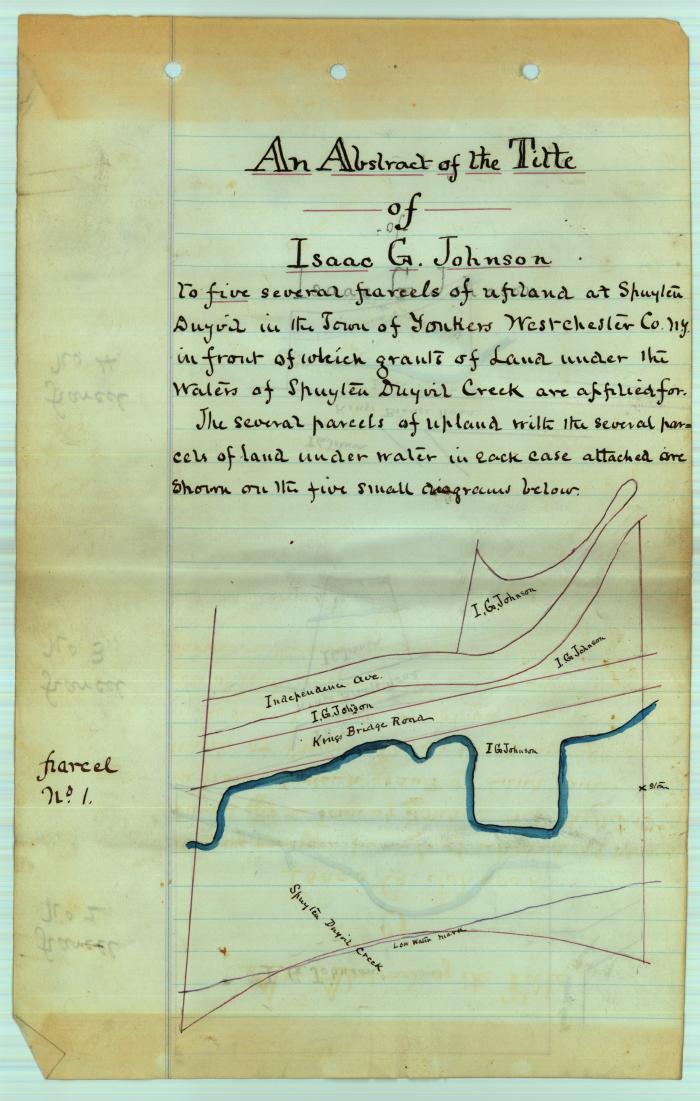 An Abstract of the Title
of
Isaac G. Johnson
to five several parcels of upland at Spuyten
Duyvil in the Town of Yonkers Westchester Co. NY.
in front of which grants of Land under the
Waters of Spuyten Duyvil Creek are applied for.
The several parcels of upland with the several par=
cels of land under water in each case attached are
shown on the five small diagrams below.
I. G. Johnson
I G Johnson
Independence Ave.
I. G. Johnson
Kings Bridge Road
I G Johnson
Parcel
No 1.
Spuyten Duyvil Creek
Low Water Mark
No 4
Parcel
No 3
Parcel
No 2
Parcel